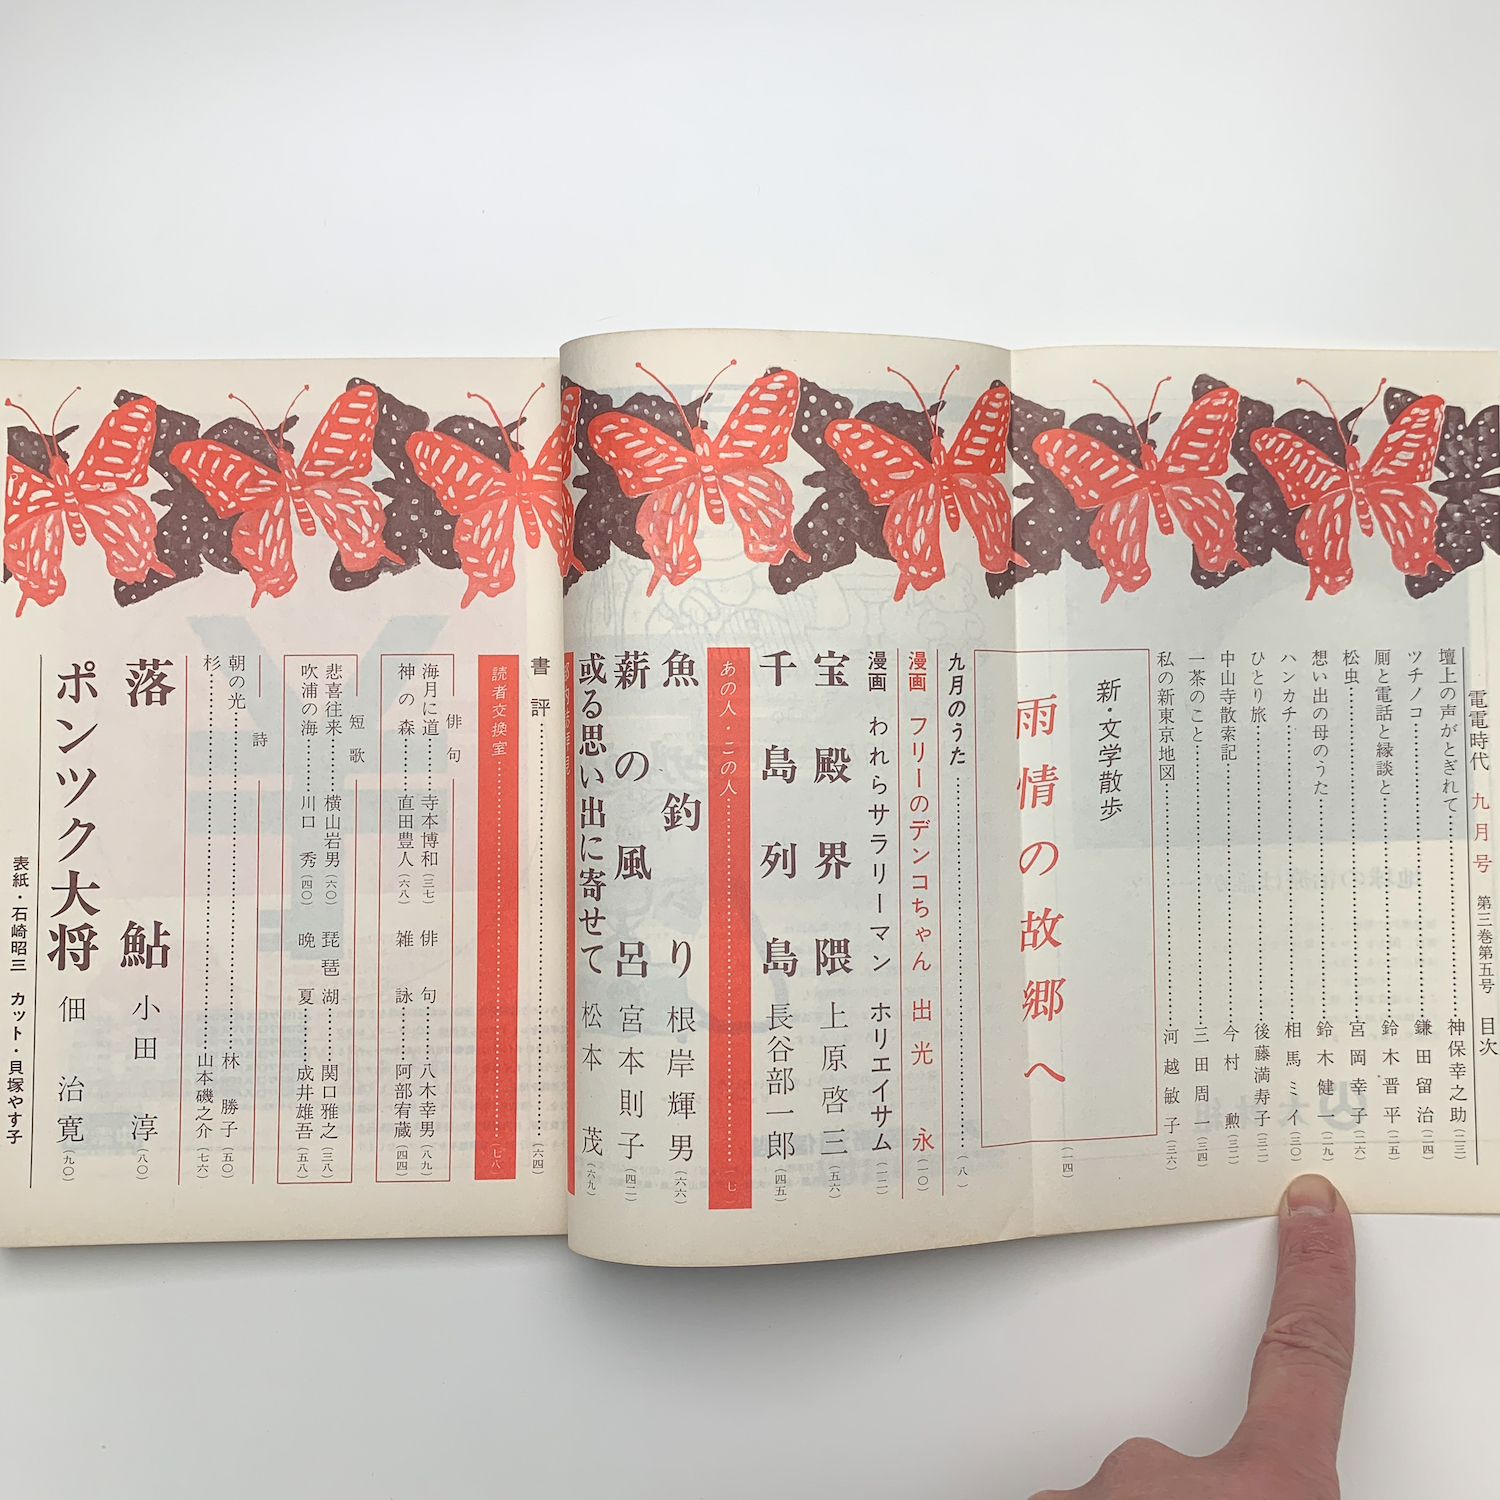 電電時代 九月号 第三巻第五号 目次
壇上の声がとぎれて……神保幸之助(二三)
ツチノコ……鎌田留治(二四)
厠と電話と縁談と……鈴木晋平(二五)
松虫……宮岡幸子(二六)
想い出の母のうた……鈴木健(二九)
ハンカチ……相馬ミイ(三〇)
ひとり旅……後藤満寿子(三二)
中山寺散索記……今村勲(三三)
一茶のこと……三田周一(三四)
私の新東京地図……河越敏子(三六)
新・文学散歩
雨情の故郷へ(一四)
九月のうた……(八)
漫画 フリーのデンコちゃん 出光永(一〇)
漫画 われらサラリーマン ホリエイサム(一二)
宝殿界隈 上原啓三(五六)
千島列島 長谷部一郎(四五)
あの人・この人……(七)
魚釣り 根岸輝男(六六)
薪の風呂 宮本則子(四二)
或る思い出に寄せて 松本茂(六九)
書評……(六四)
読者交換室……(七八)
俳句
海月に道……寺本博和(三七)
神の森……直田豊人(六八)
俳句……八木幸男(八九)
雑詠……阿部宥蔵(四四)
短歌
悲喜往来……横山岩男(六〇)
吹浦の海……川口秀(四〇)
琵琶湖……関口雅之(三八)
晩夏……成井雄吾(五八)
詩
朝の光……林勝子(五〇)
杉……山本磯之介(七六)
落鮎 小田淳(八〇)
ポンツク大将 佃治寛(九〇)
表紙・石崎昭三 カット・貝塚やす子